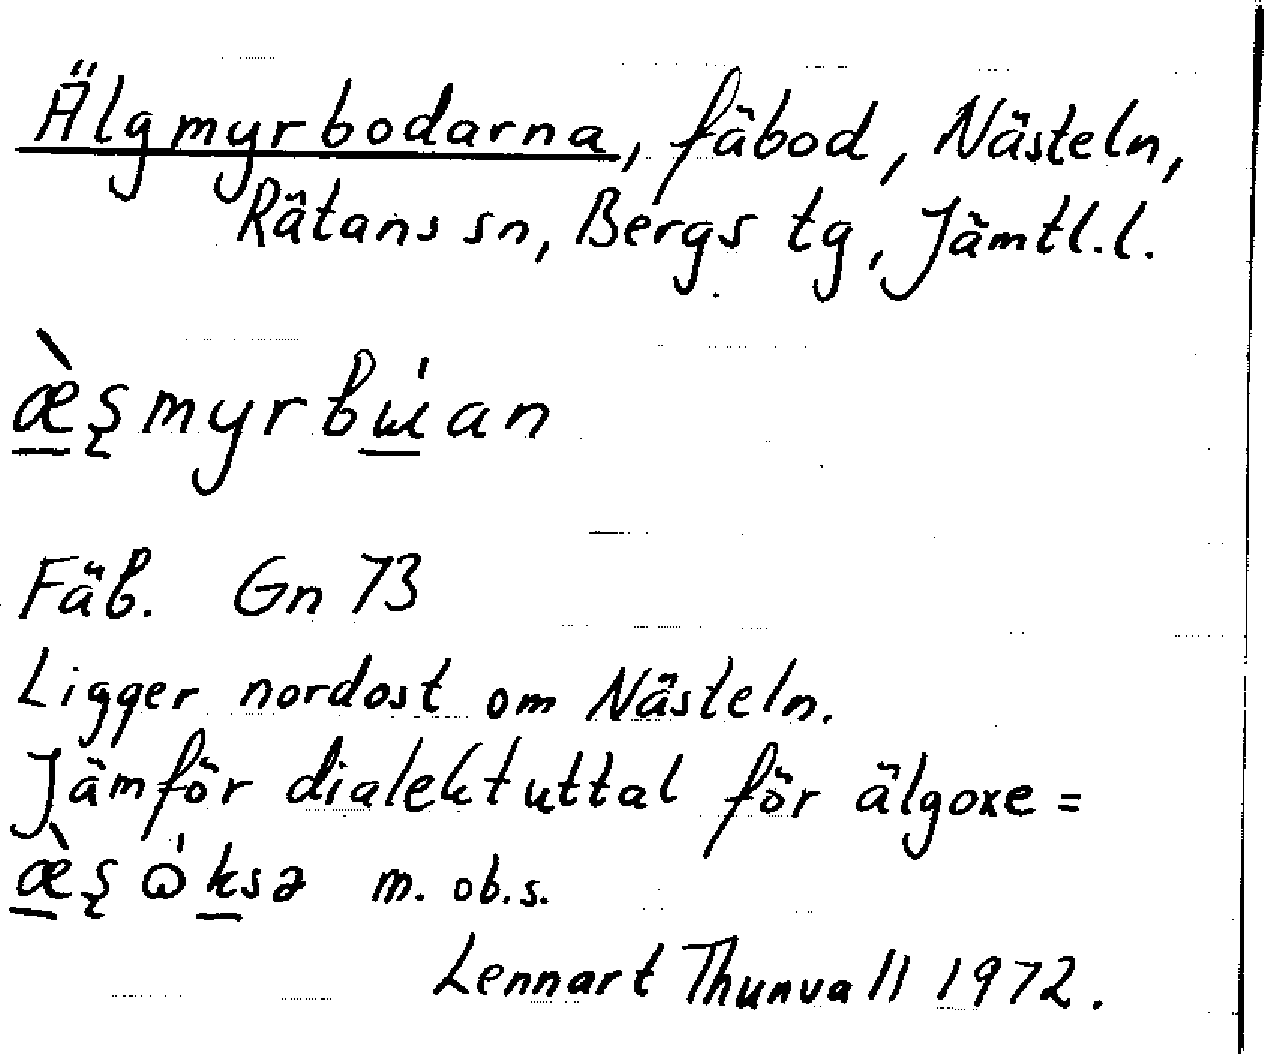 Älgmyrbodarna, fäbod, Nästeln,
Rätans sn, Bergs tg, Jämtl.l.
æ̀ȿmyrbɯ́an
Fäb. Gn 73
Ligger nordost om Nästeln.
Jämför dialektuttal för älgoxe =
æ̀ȿ ὠksə m. ob.s.
Lennart Thunvall 1972.